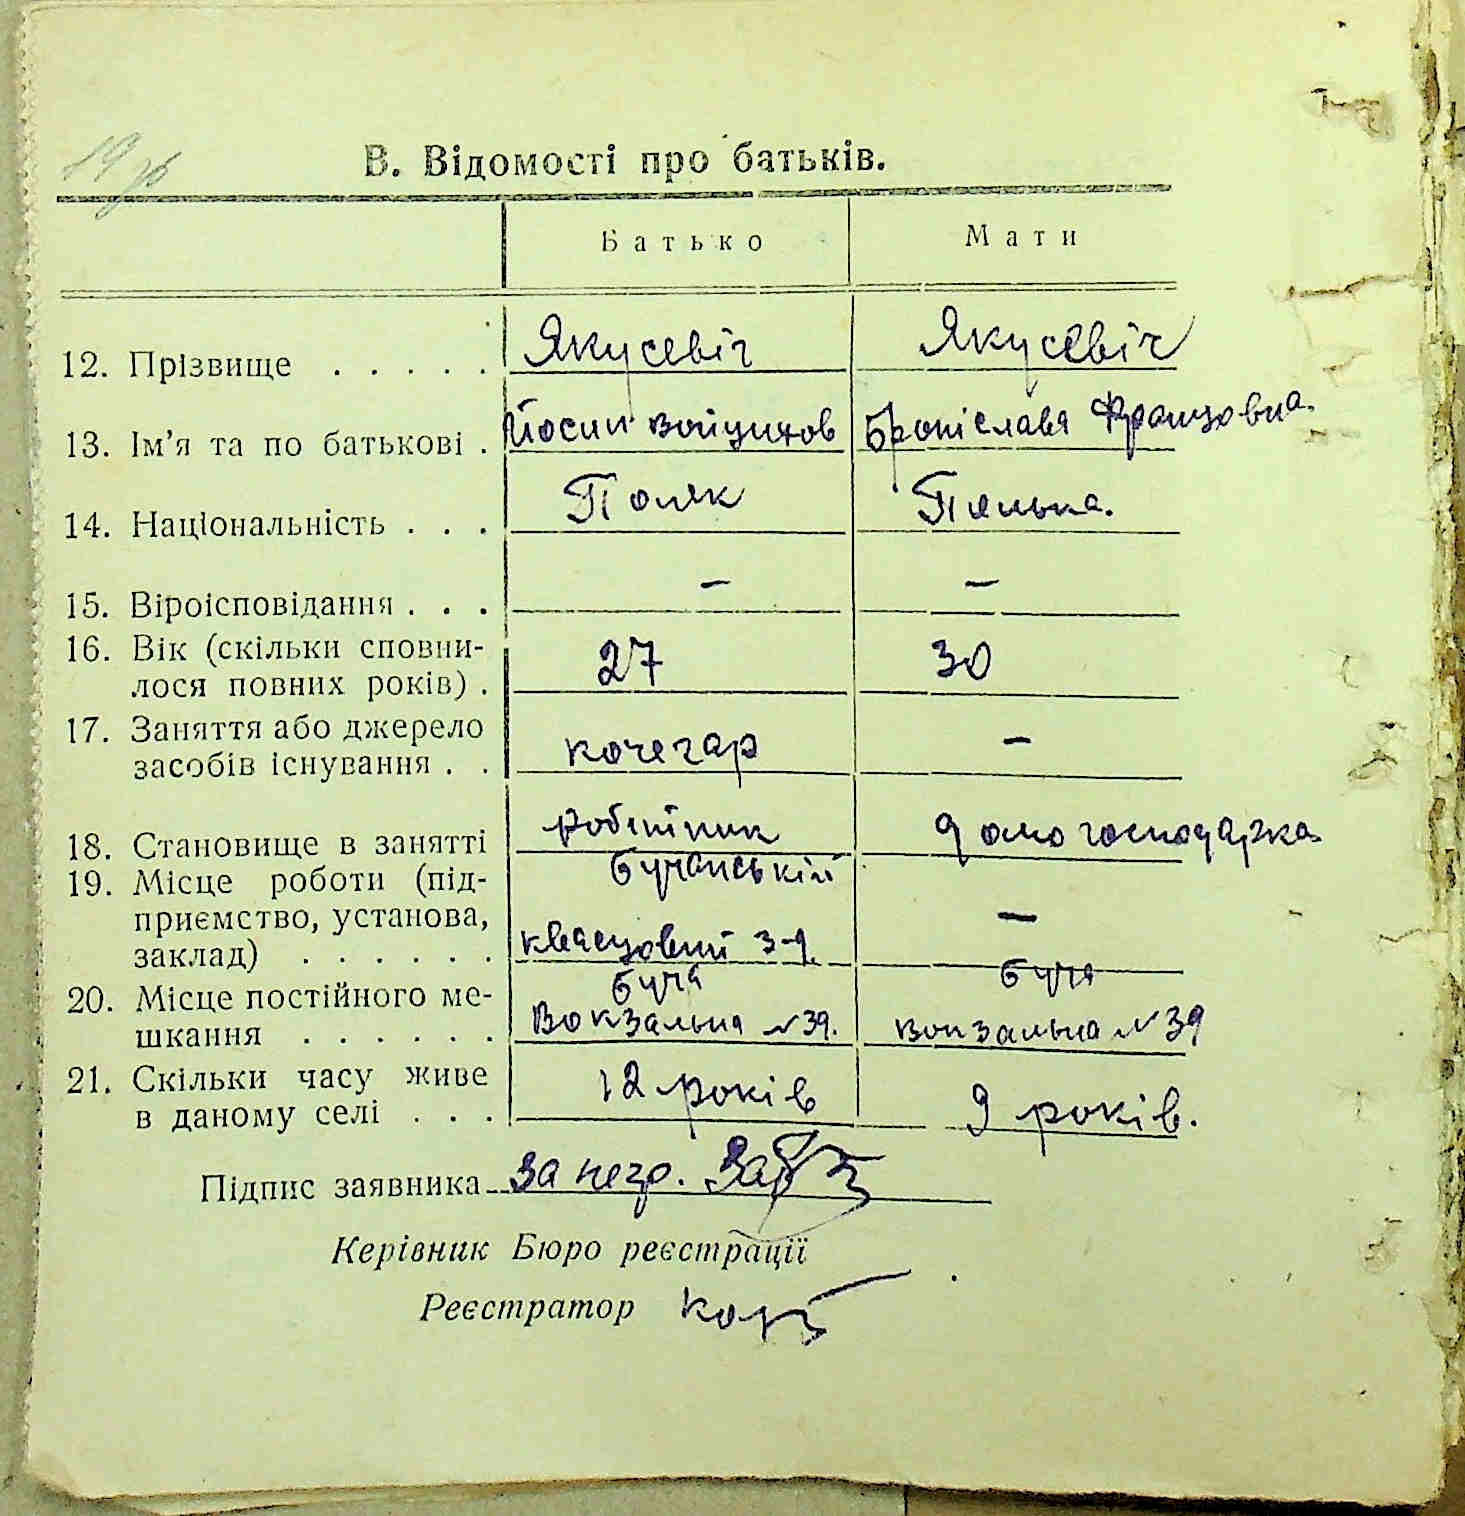 19 зв
В. Відомості про батьків.
Батько Мати
12. Прізвище . . . . . Якусевіч Якусевіч
13. Ім'я та по батькові . Йосип Войцихов Броніслава Францовна.
14. Національність . . . Поляк Полька.
15. Віроісповідання . . . – –
16. Вік (скільки сповни-
лося повних років) . 27 30
17. Заняття або джерело
засобів існування . . кочегар –
18. Становище в занятті робітник домогосподарка
19. Місце роботи (під- Бучанський
приємство, установа, –
заклад) . . . . . . квасцовий з-д.
20. Місце постійного ме- Буча Буча
шкання . . . . . . Вокзальна №39. Вокзальна №39
21. Скільки часу живе
в даному селі . . . 12 років 9 років.
Підпис заявника За негр.
Керівник Бюро реєстрації
Реєстратор